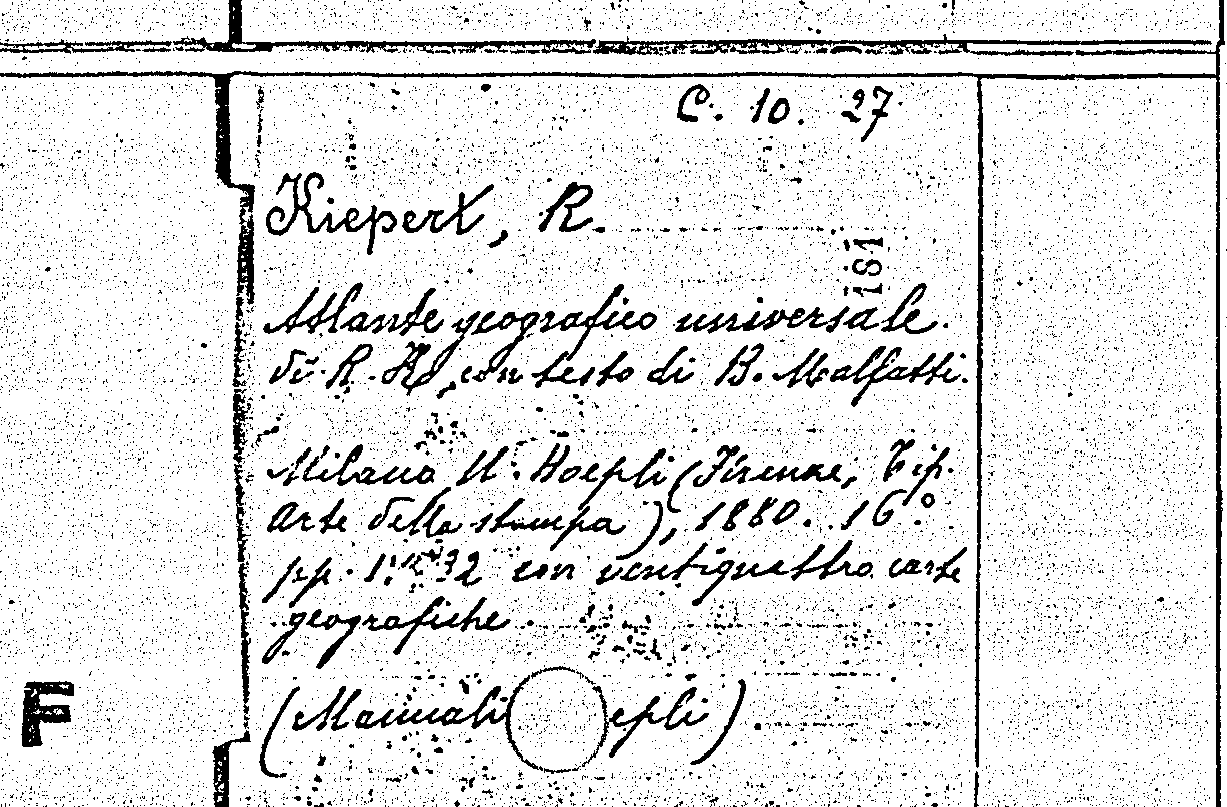 C. 10. 27
Kiepert, R.
181
Atlante geografico universale
di R. K., con testo di B. Malfatti.
Milano U. Hoepli (Firenze, Tip.
Arte della stampa), 1880. 16.º
pp. 32 con ventiquattro carte
geografiche.
F
(Manuali epli).